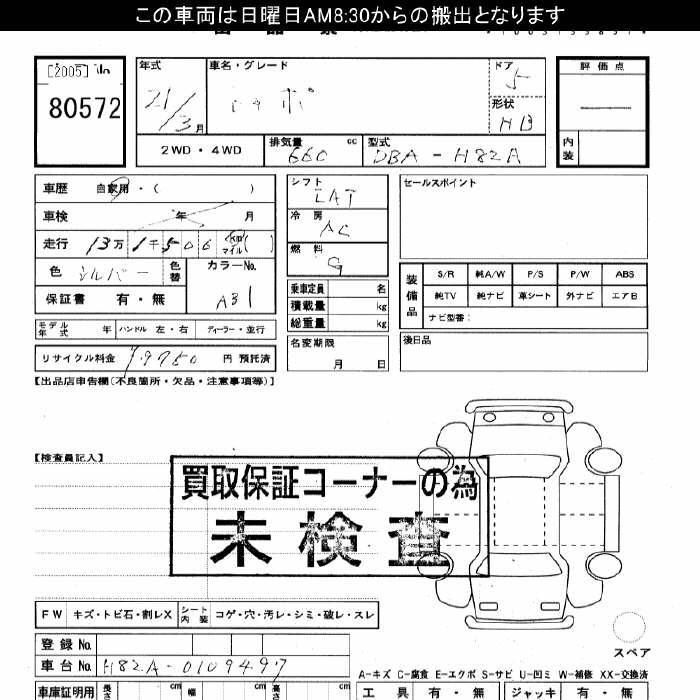 この車両は日曜日AM8:30からの搬出となります
[2005]
80572
年式
21/3月
車名・グレード
トッポ
ドア
5
形状
HB
評価点
内装
2WD・4WD
排気量
660
cc
型式
DBA-H82A
車歴 自家用・( )
車検 年 月
走行 13万 1千506 km マイル ( )
色 シルバー 色替
カラーNo.
A31
保証書 有・無
モデル年式 年 ハンドル 左・右 ディーラー・並行
リサイクル料金 円 預託済
シフト
LAT
冷房
AC
燃料
G
乗車定員 名
積載量 kg
総重量 kg
名変期限
月 日
セールスポイント
装備品
S/R 純A/W P/S P/W ABS
純TV 純ナビ 革シート 外ナビ エアB
ナビ型番:
後日品
【出品店申告欄(不良箇所・欠品・注意事項等)】
【検査員記入】
買取保証コーナーの為
未検査
FW キズ・トビ石・割レX シート内装 コゲ・穴・汚レ・シミ・破レ・スレ
スペア
登録 No.
車台 No. H82A-0109497
A-キズ C-腐食 E-エクボ S-サビ U-凹ミ W-補修 XX-交換済
車庫証明用 長さ cm 幅 cm 高さ cm
工具 有・無 ジャッキ 有・無